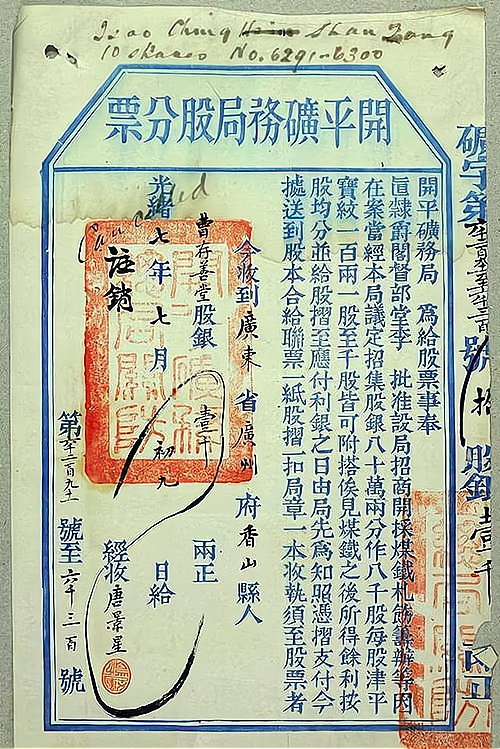 Tsao Ching Hsin Shan Tong
10 shares No. 6291-6300
開平礦務局股分票
開平礦務局 爲給股票事奉
直隸爵閣督部堂李 批准設局招商開採煤鐵札飭籌辦等因
在案當經本局議定招集股銀八十萬兩分作八千股每股津平
寶紋一百兩一股至千股皆可附搭俟見煤鐵之後所得餘利按
股均分並給股摺至應付利銀之日由局先爲知照憑摺支付今
據送到股本合給聯票一紙股摺一扣局章一本收執須至股票者
今收到廣東省廣州府香山縣人
曹存善堂股銀壹千兩正
光緒七年七月初九日給
Cancelled
註銷
經收唐景星
第六千二百九十一號至六千三百號